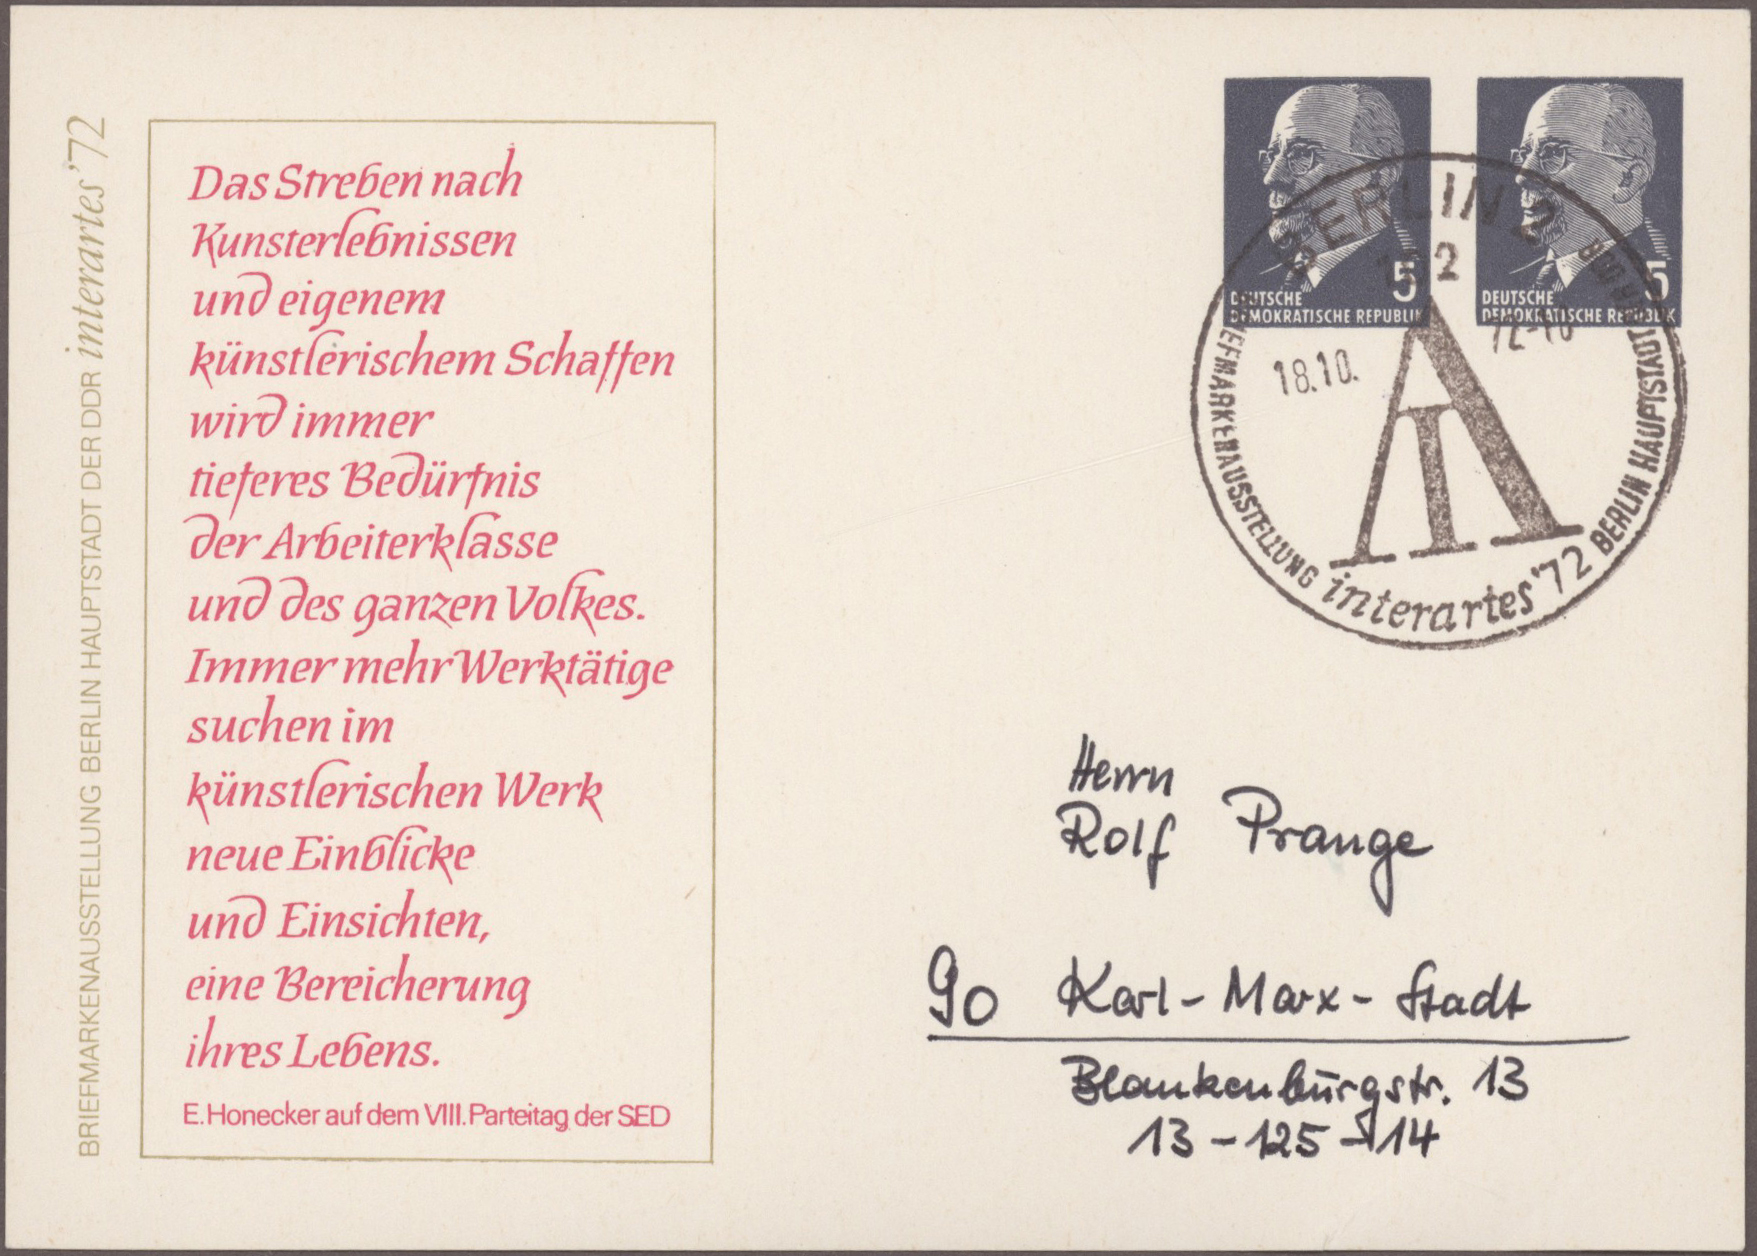 BRIEFMARKENAUSSTELLUNG BERLIN HAUPTSTADT DER DDR interartes '72
Das Streben nach
Kunsterlebnissen
und eigenem
künstlerischem Schaffen
wird immer
tieferes Bedürfnis
der Arbeiterklasse
und des ganzen Volkes.
Immer mehr Werktätige
suchen im
künstlerischen Werk
neue Einblicke
und Einsichten,
eine Bereicherung
ihres Lebens.
E. Honecker auf dem VIII. Parteitag der SED
5
DEUTSCHE
DEMOKRATISCHE REPUBLIK
5
DEUTSCHE
DEMOKRATISCHE REPUBLIK
BERLIN 2
18.10.
BRIEFMARKENAUSSTELLUNG interartes '72 BERLIN HAUPTSTADT
Herrn
Rolf Prange
90 Karl-Marx-Stadt
Blankenburgstr. 13
13-125-14